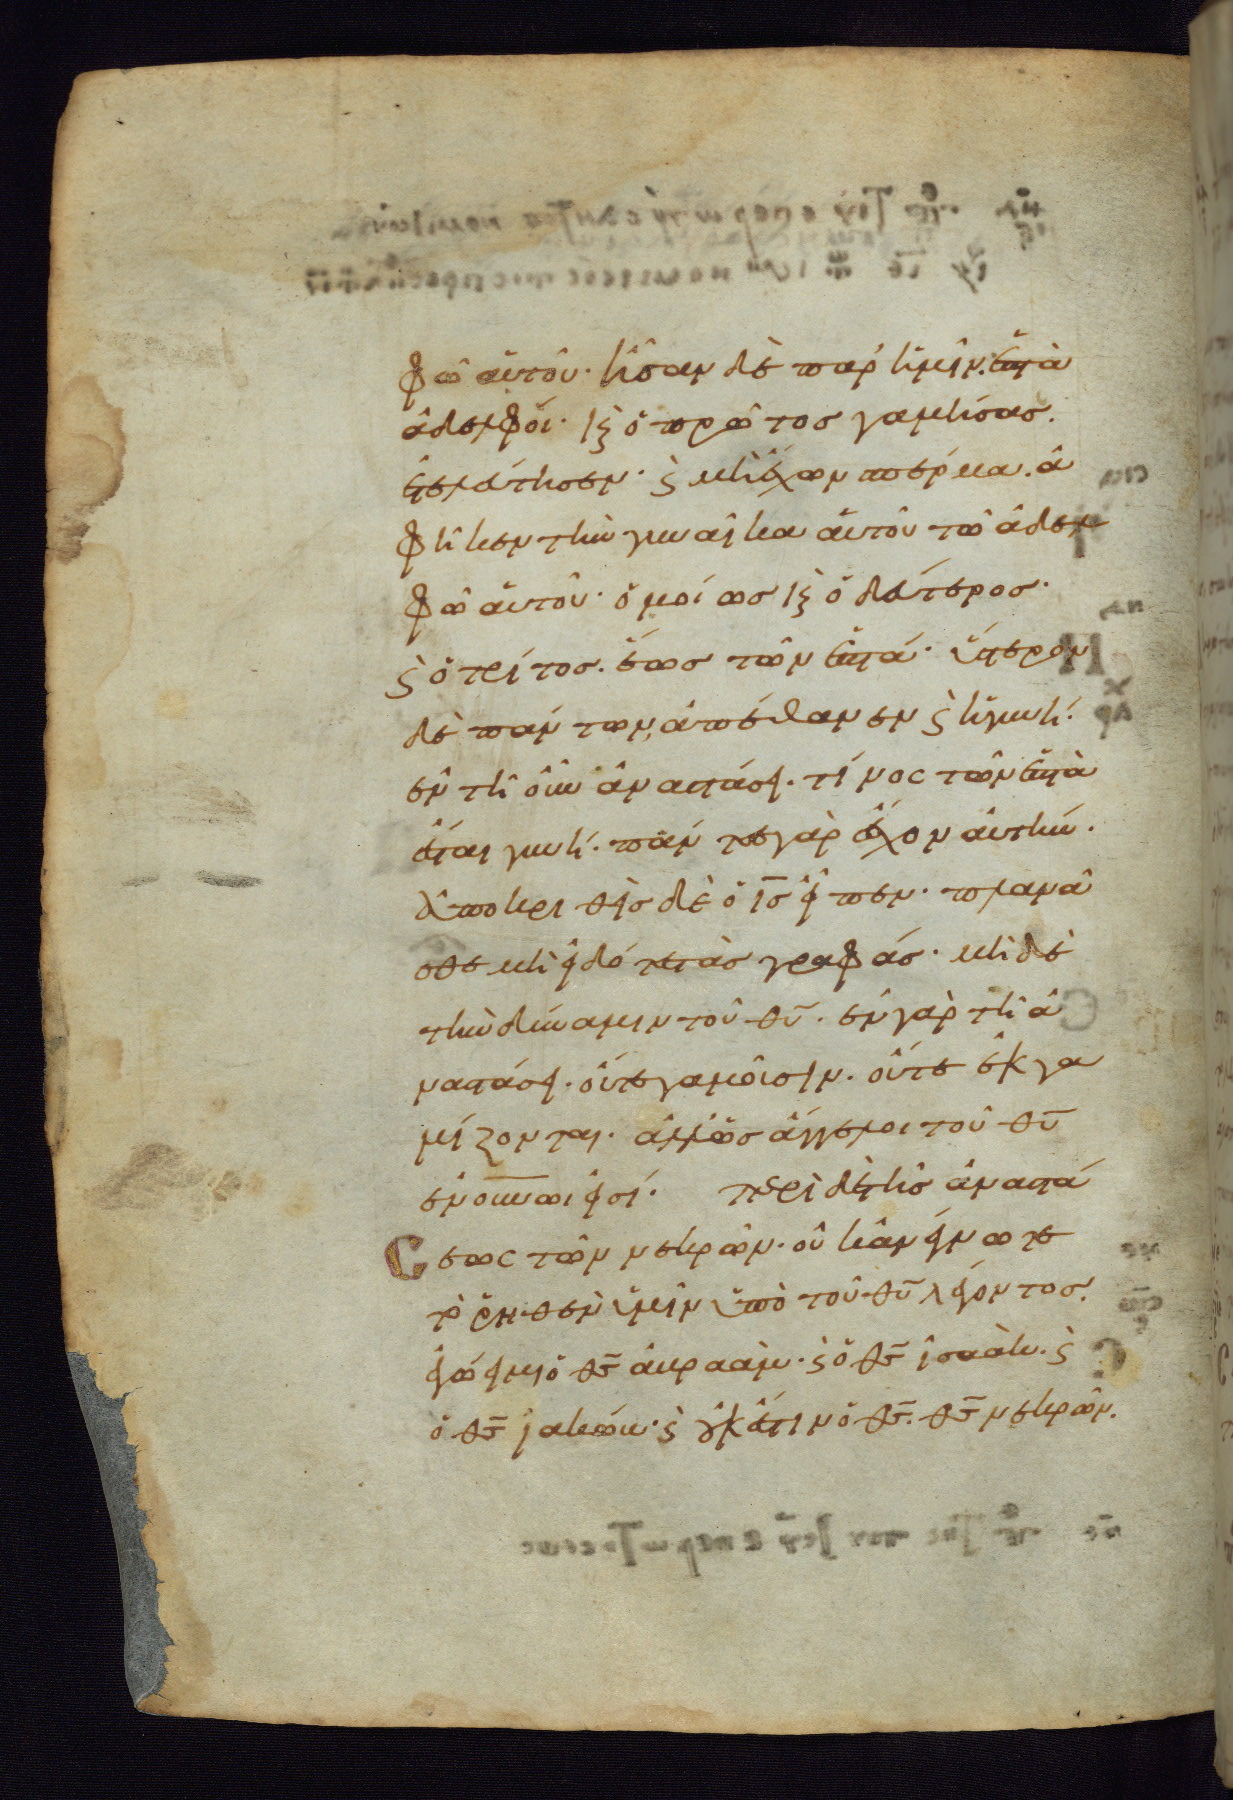 φῶ αὐτοῦ· ἦσαν δὲ παρ' ἡμῖν ἑπτὰ
ἀδελφοί· κ(αὶ) ὁ πρῶτος γαμήσας.
ἐτελεύτησεν· κ(αὶ) μὴ ἔχων σπέρμα. ἀ
φῆκεν τὴν γυναῖκα αὐτοῦ τῶ ἀδελ
φῶ αὐτοῦ· ὁμοίως κ(αὶ) ὁ δεύτερος·
κ(αὶ) ὁ τρίτος. ἕως τῶν ἑπτά· ὕστερον
δὲ πάντων, ἀπέθανεν κ(αὶ) ἡ γυνή·
ἐν τῆ οὖν ἀναστάσει· τίνος τῶν ἑπτὰ
ἔσται γυνή· πάντες γὰρ ἔσχον αὐτήν.
Ἀποκριθεὶς δὲ ὁ ι̅ς̅ εἶπεν· πλανᾶ
σθε μὴ εἰδότες τὰς γραφάς· μὴ δὲ
τὴν δύναμιν τοῦ θ̅υ̅· ἐν γὰρ τῆ ἀ
ναστάσει· οὔτε γαμοῦσιν· οὔτε ἐκγα
μίζονται· ἀλλ' ὡς ἄγγελοι τοῦ θ̅υ̅
ἐν ο̅υ̅ν̅ω̅ εἰσί· περὶ δὲ τῆς ἀναστά
σεως τῶν νεκρῶν· οὐκ ἀνέγνωτε
τὸ ῥηθὲν ὑμῖν ὑπὸ τοῦ θ̅υ̅ λέγοντος·
ἐγώ εἰμι ὁ θ̅ς̅ ἀβραάμ· κ(αὶ) ὁ θ̅ς̅ ἰσαάκ· κ(αὶ)
ὁ θ̅ς̅ ἰακώβ· κ(αὶ) οὐκ ἔστιν ὁ θ̅ς̅· θ̅ς̅ νεκρῶν.